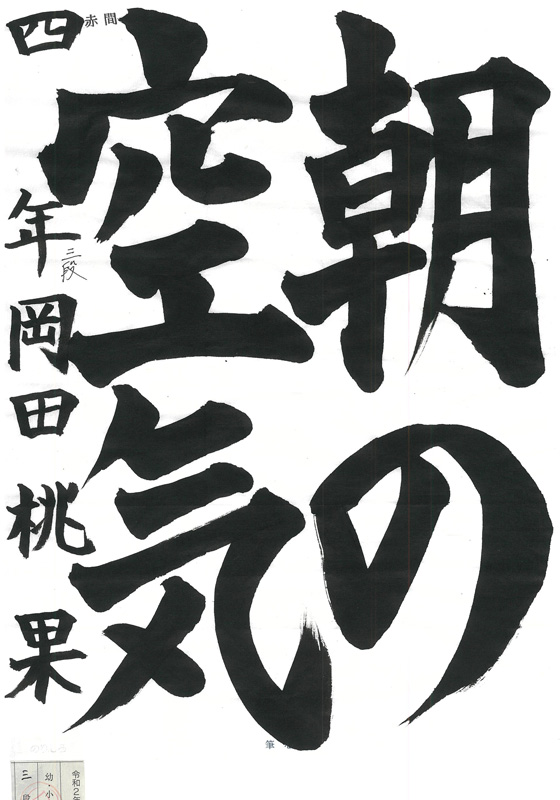 朝の
空気
赤間
四年 岡田桃果
三段
筆
令和2年
幼・小
三段